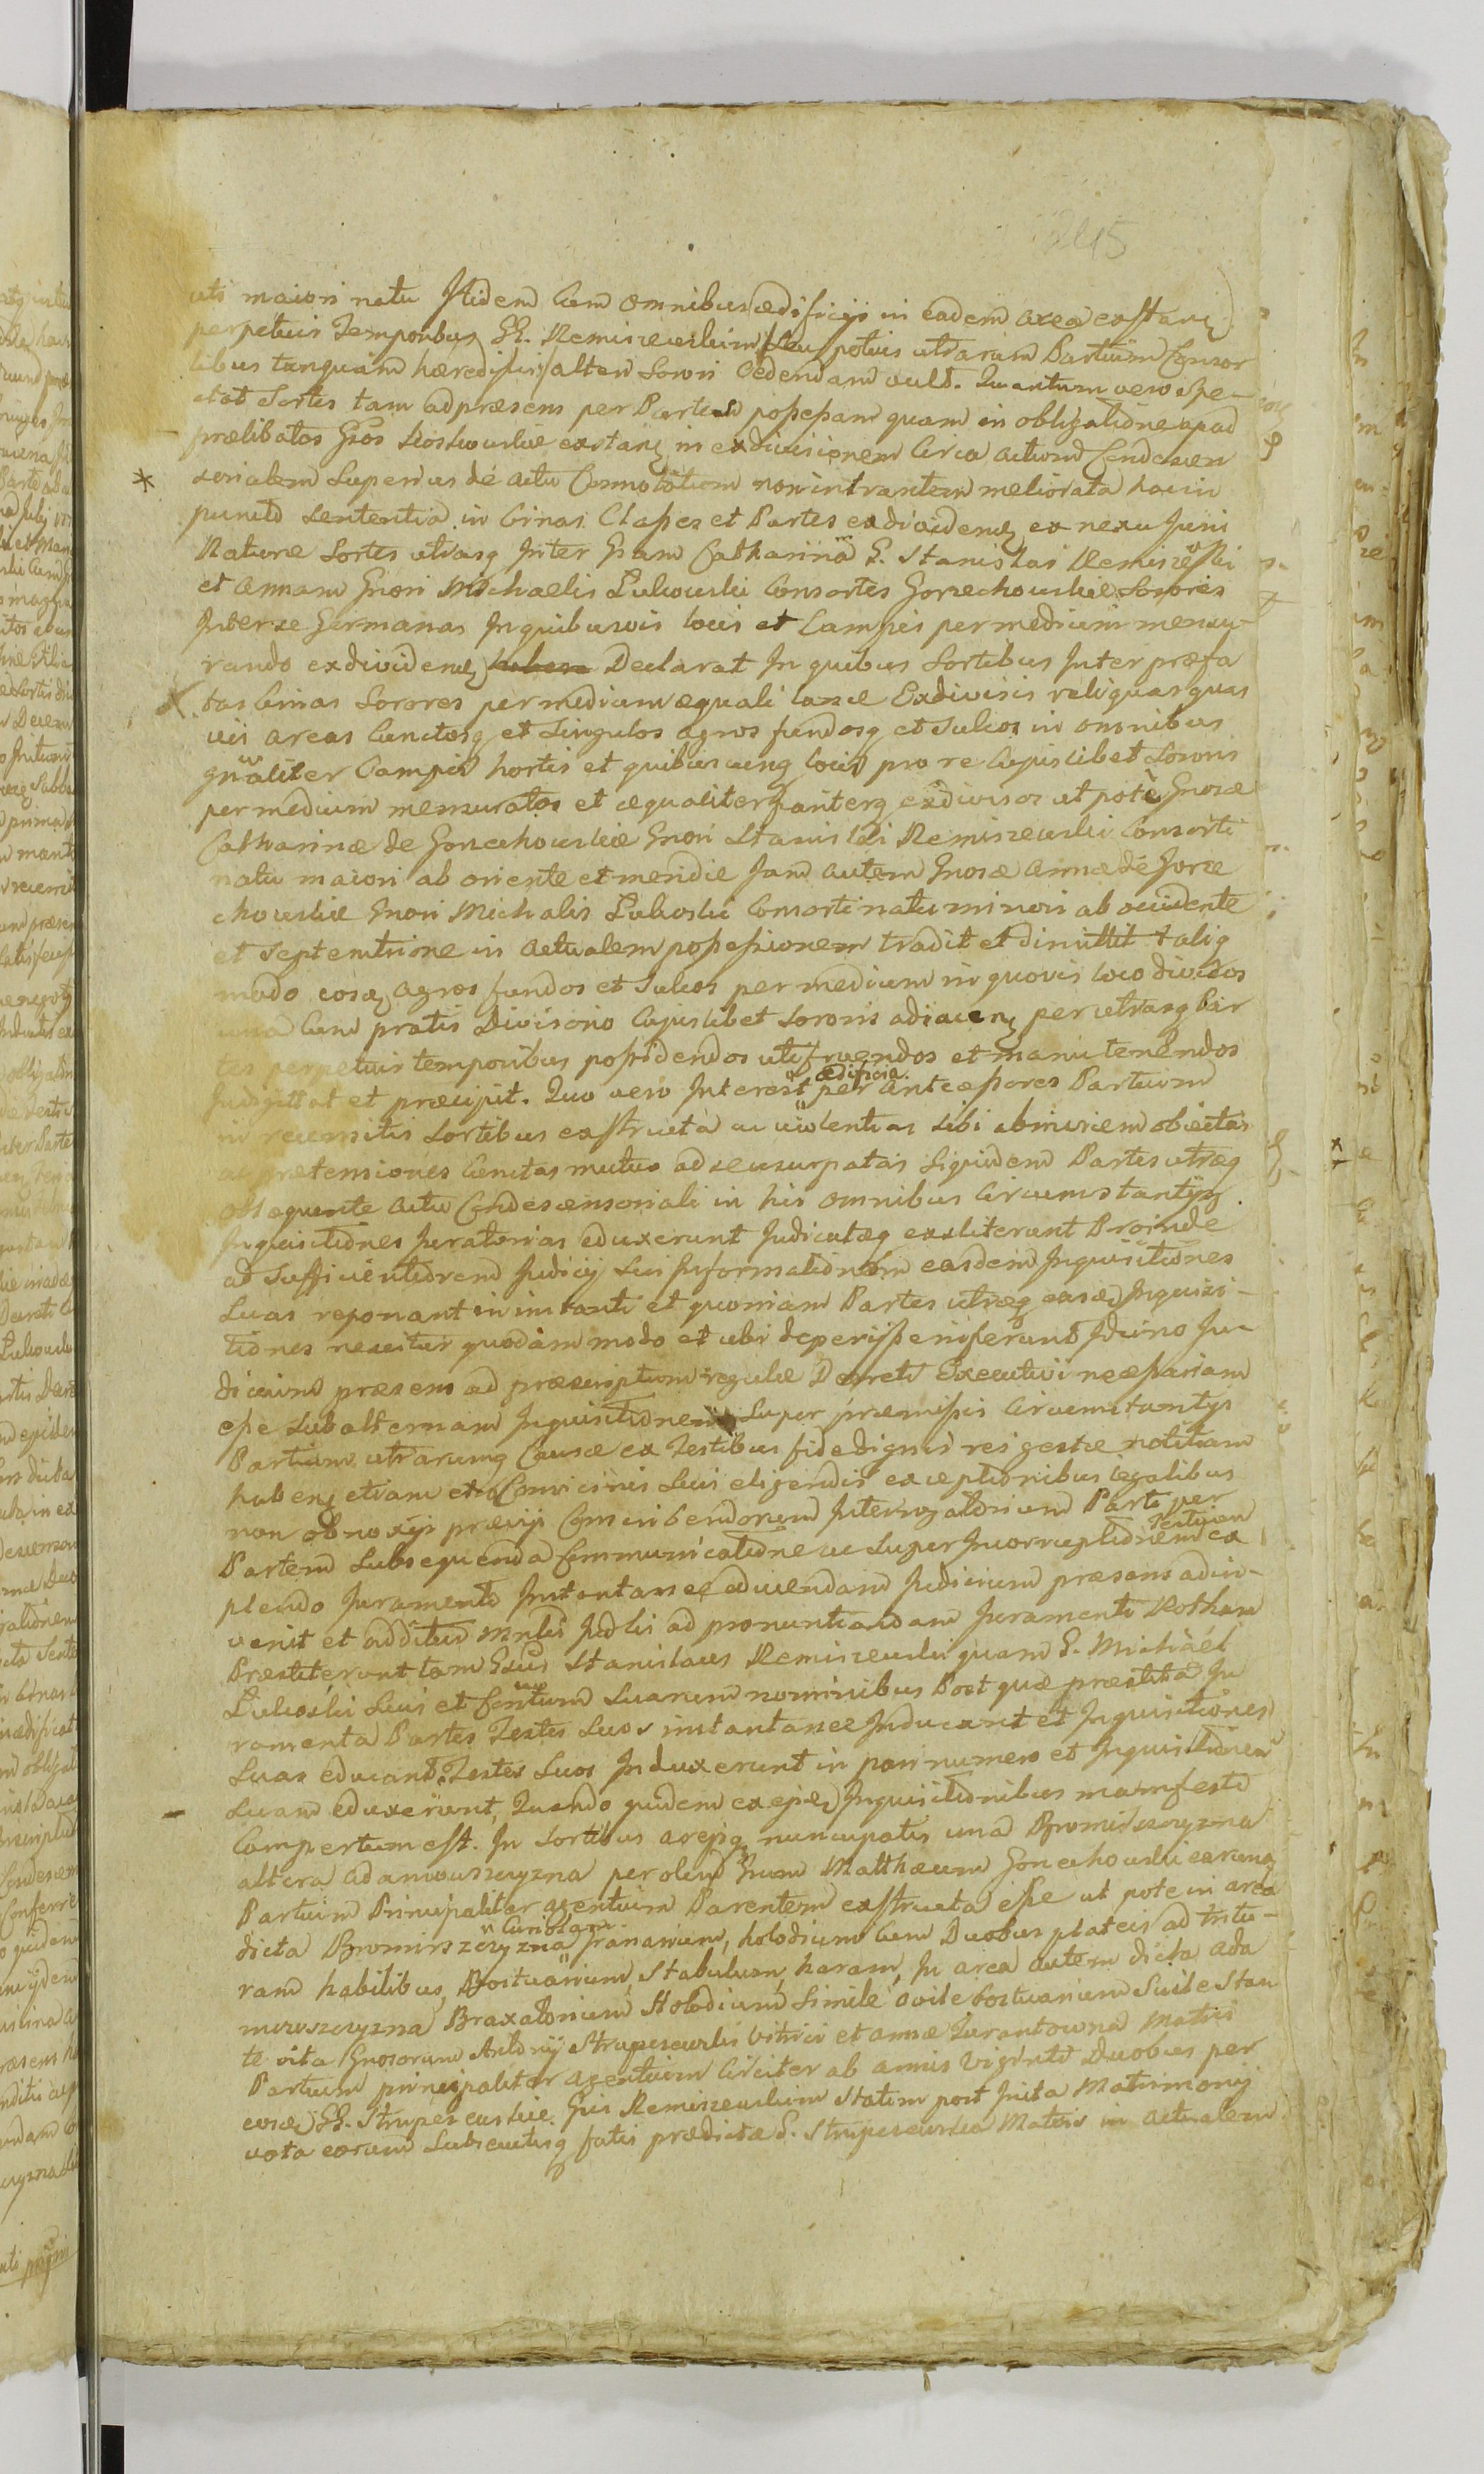 245
uti maiori natu Itidem Cum omnibus ædificijs in eadem area exstanẽ
perpetuis Temporibus GG. Remiszewskim seu potius utrarum Partium Consor
tibus tanquam hæredissis alteri Sorori Cedendam vult. Quantum vero spe-
ctat Sortes tam ad præsens per Partes possessam quam in obligatione apud
prælibatos Gsos Koskowskie exstanẽ in exdivisionem Circa actum Condescen
sorialem Superius de actu Connotatum non intrantem meliorata hac in
puncto Sententia in binas Classes et Partes exdividenẽ ex nexu Juris
Naturæ Sortes utrasq Inter Gsam Catharinam G. Stanislai Remiszewski
et Annam Gnosi Michaelis Lukowski Consortes Gorzechowskie Sorores
Inter se Germanas In quibusvis locis et Campis per medium mensu-
rando exdividenẽ Declarat In quibus Sortibus Inter præfa
tas binas Sorores per medium æquali lance Exdivisis reliquas quas
vis areas Cunctosq et Singulos agros fundosq et Sulcos in omnibus
gnãliter Campis hortis et quibuscunq locis pro re Cujuslibet Sororis
per medium mensuratos et æqualiter pariterq exdivisos utpote Gnosæ
Catharinæ de Gorzechowskie Gnosi Stanislai Remiszewski Consorti
natu maiori ab oriente et meridie Jam autem Gnosæ Annæ de Gorze
chowskie Gnosi Michalis Lukoski Consorti natu minori ab occidente
et Septemtrione in actualem possessionem tradit et dimittit taliq
modo eosđ agros fundos et Sulcos per medium in quovis loco divisos
una Cum pratis Divisorio Cujuslibet Sororis adiacenẽ per utrasq Par
tes perpetuis temporibus possidendos utifruendos et manutenendos
Indigittat et præcipit. Quo vero Interest ædificia per Antecessores Partium
in recensitis Sortibus exstructa ac violentias Sibi abinvicem obiectas
ac prætensiones Cunctas mutuo ad se usurpatas Siquidem Partes utræq
obloquente actu Condescensoriali in his omnibus Circumstantijs
Inquisitiones Juratorias eduxerunt Judicatæq exstiterunt Proinde
ad Sufficientiorem Judicij Sui Informationem easdem Inquisitiones
Suas reponant in instanti et quoniam Partes utræq easđ Inquisi-
tiones nescitur quodam modo et ubi deperijsse insferunt Idcirco Ju-
dicium præsens ad præscriptum regulæ Decreti Executivi necessariam
esse Subalternam Inquisitionem Super præmissis Circumstantijs
Partium utrarumq Causæ ex Testibus fidedignis rei gestæ notitiam
habenẽ etiam et a Convicinis Suis eligendis exceptionibus legalibus
non obnoxijs prævij Conscribendorum Interrogatorium Parte per
Partem Subsequenda Communicatione ac Super Incorruptionem Testium ex
plendo Juramento Instantanee educendam Judicium præsens adin-
venit et additus Mnlis Judij ad pronuntiandam Juramenti Rotham
Præstiterunt tam Gsus Stanislaus Remiszewski quam G. Michaël
Lukoski Suis et Consortum Suarum nominibus Post quæ præstita Ju
ramenta Partes Testes Suos instantanee Inducant et Inquisitiones
Suas educant. Testes Suos Induxerunt in pari numero et Inquisitionem
Suam eduxerunt, Quando quidem ex ejsđ Inquisitionibus manifeste
Compertum est. In Sortibus areisq nuncupatis una Bromirszczyzna
altera Adamowszczyzna per olim Gsum Matthæum Gorzechowski earunđ
Partium Principaliter agentium Parentem exstructa esse ut pote in area
dicta Bromirszczyzna Curiolam Granarium, holodium Cum Duobus plateis ad tritu-
ram habilibus, Bostuarium Stabulum, haram, In area autem dicta Ada
mowszczyzna Braxatorium Holodium Simile ovile bostuarium Suile Stan
te vita Gnosorum Antonij Strupczewski vitrici et Annæ Jurantowna Matris
Partium principaliter agentium Circiter ab annis Viginti Duobus per
eosđ GG. Strupczewskie. Gsis Remiszewskim Statim post Inita Matrimonij
vota eorum Subsecutisq fatis prædictæ G. Strupczewska Matris in actualem